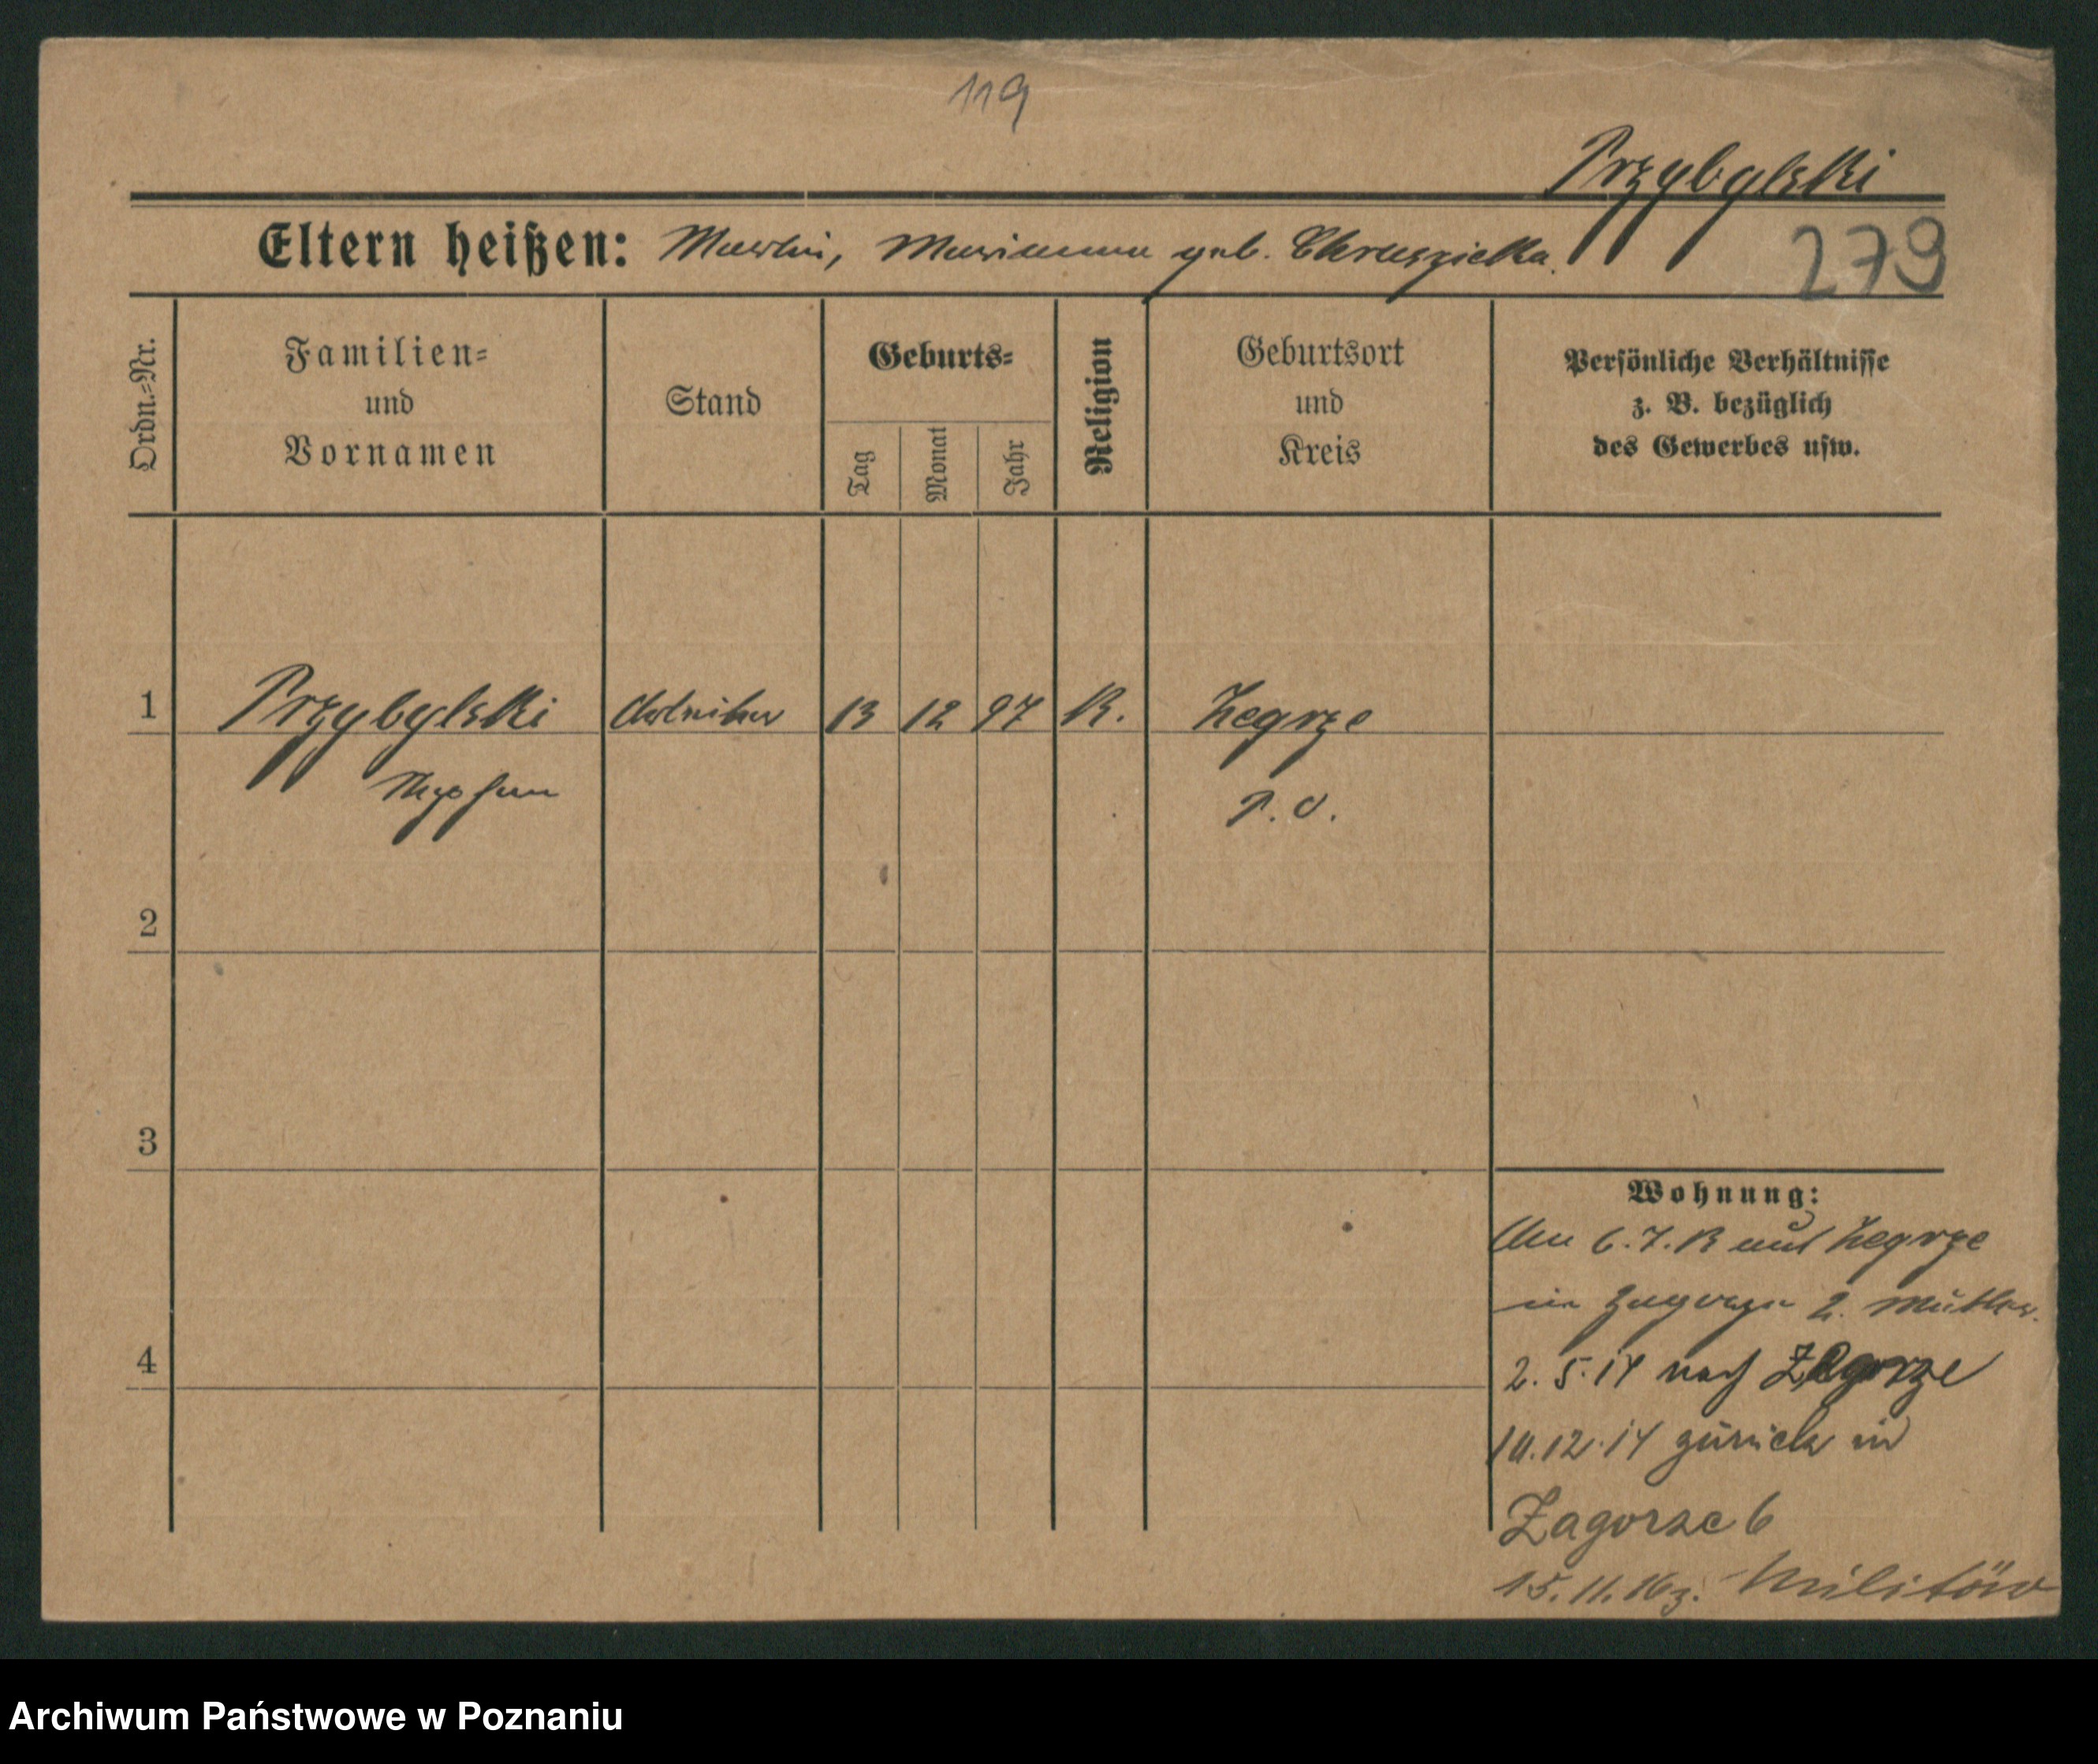 119
Przybylski
Eltern heißen: Martin, Marianna geb. Chruszicka.
279
Ordn.=Nr.
Familien=
und
Vornamen
Stand
Geburts=
Tag
Monat
Jahr
Religion
Geburtsort
und
Kreis
Persönliche Verhältnisse
z. B. bezüglich
des Gewerbes usw.
1 Przybylski Arbeiter 13 12 97 K. Zegrze
P. O.
2
3
Wohnung:
6.7.13 aus Zegrze
in Zagorze 2. Mutter.
4
2.5.14 nach Zegrze
10.12.14 zurück in
Zagorze 6
15.11.16 z. Militär
Archiwum Państwowe w Poznaniu